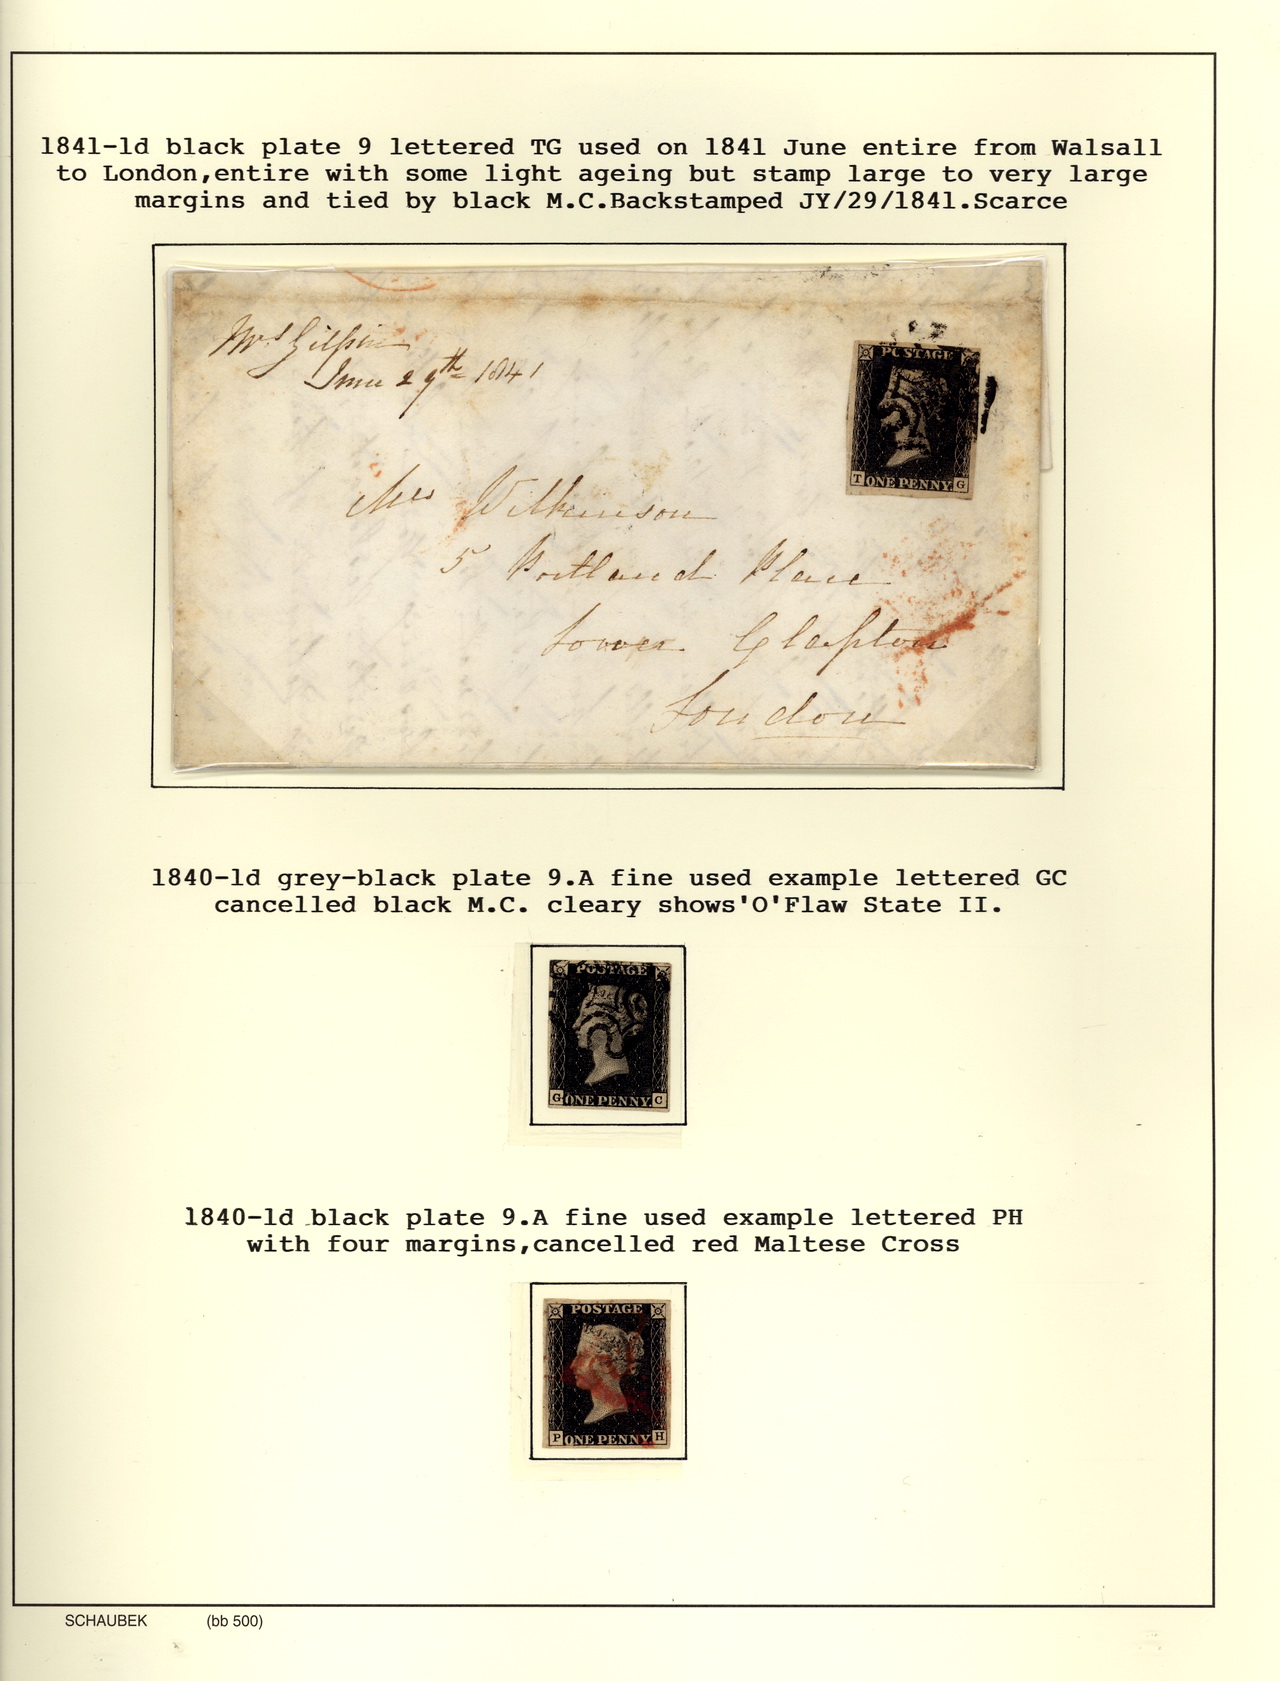 1841-1d black plate 9 lettered TG used on 1841 June entire from Walsall
to London,entire with some light ageing but stamp large to very large
margins and tied by black M.C.Backstamped JY/29/1841.Scarce
Mrs Gilpin
June 29th 1841
POSTAGE
T ONE PENNY G
Mrs Wilkinson
5 Portland Place
Lower Clapton
London
1840-1d grey-black plate 9.A fine used example lettered GC
cancelled black M.C. cleary shows'O'Flaw State II.
POSTAGE
G ONE PENNY. C
1840-1d black plate 9.A fine used example lettered PH
with four margins,cancelled red Maltese Cross
POSTAGE
P ONE PENNY H
SCHAUBEK (bb 500)